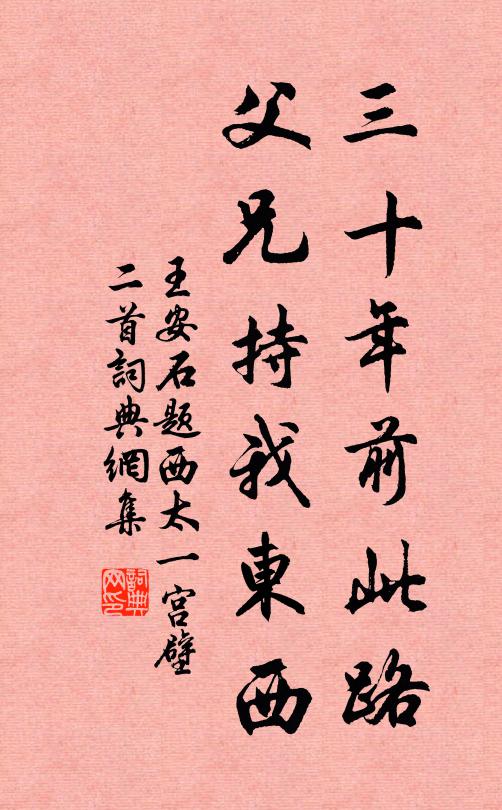 三十年前此路
父兄持我東西
王安石題西太一宮壁
二首詞典網集
詞典網印